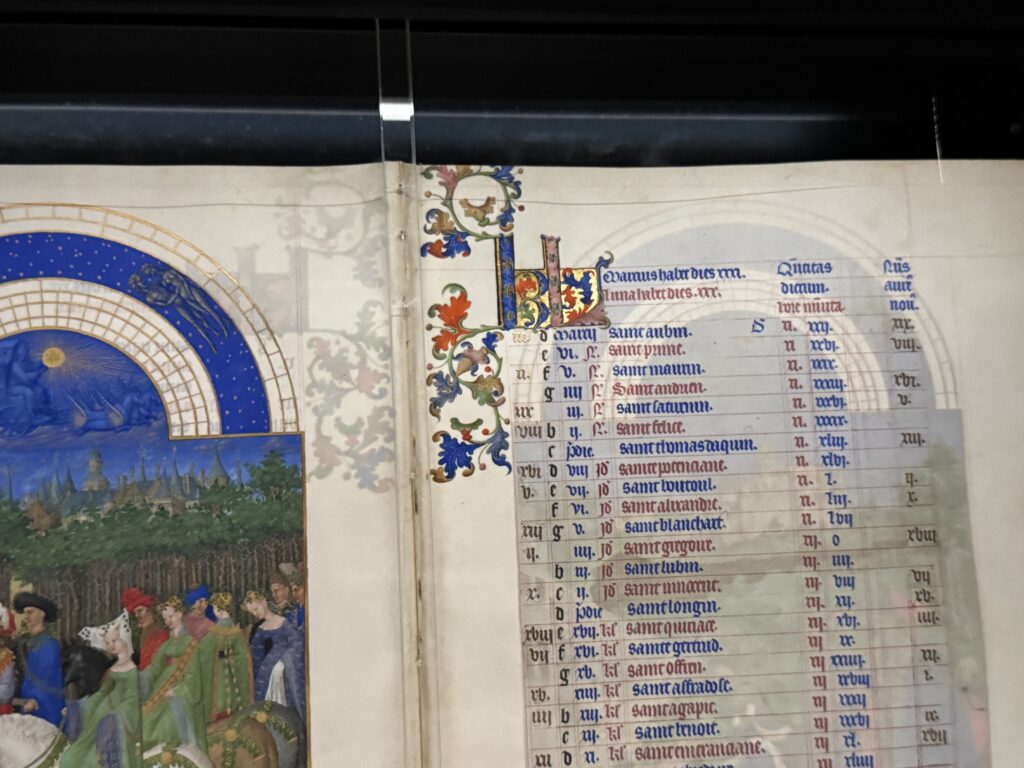 Marcius habet dies xxxi. Q̄ntitas Nūs
Luna habet dies .xxx. dierum. auree
hore minuta nou.
iii d Marcii saint aubin. xi. xxj. xix.
e vi. saint prime. xi xxvj. viii.
xi. f v. saint maurin. xi. xxix.
g iiij saint andrien. xi. xxxiij. xvi.
xix iij. saint saturnin. xi. xxxvj. v.
viii b ij. saincte felice. xi. xxxix.
c pdie. saint thomas daquin. xi. xliij. xiii.
xvi d viij id saincte potenciane. xi. xlvj.
v. e vij. id saint boutoul. xi. l. ij.
f vi. id saint alixandre. xi. liij x.
xiij g v. id saint blanchart. xi. lvij
ij. iiij. id saint grigoire. xij. o xviij
b iij. id saint lubin. xij. iiij.
x. c ij id saint innocent. xij. viij vij
d pdie saint longin. xij. xj. xv.
xviij e xvij. kl saint quiriace. xij. xvj. iiij.
vij f xvi. kl saincte gertrud. xij xx.
g xv. kl saint offren. xij xxiiij. xij.
xv. xiiij. kl saint affrodose. xij xxviij i.
iiij b xiij. kl saint agapit. xij xxxij
c xij. kl saint benoit. xij xxxvj ix.
xij d xi. kl saincte emeranciane. xij xl. xvij
xij xliiij